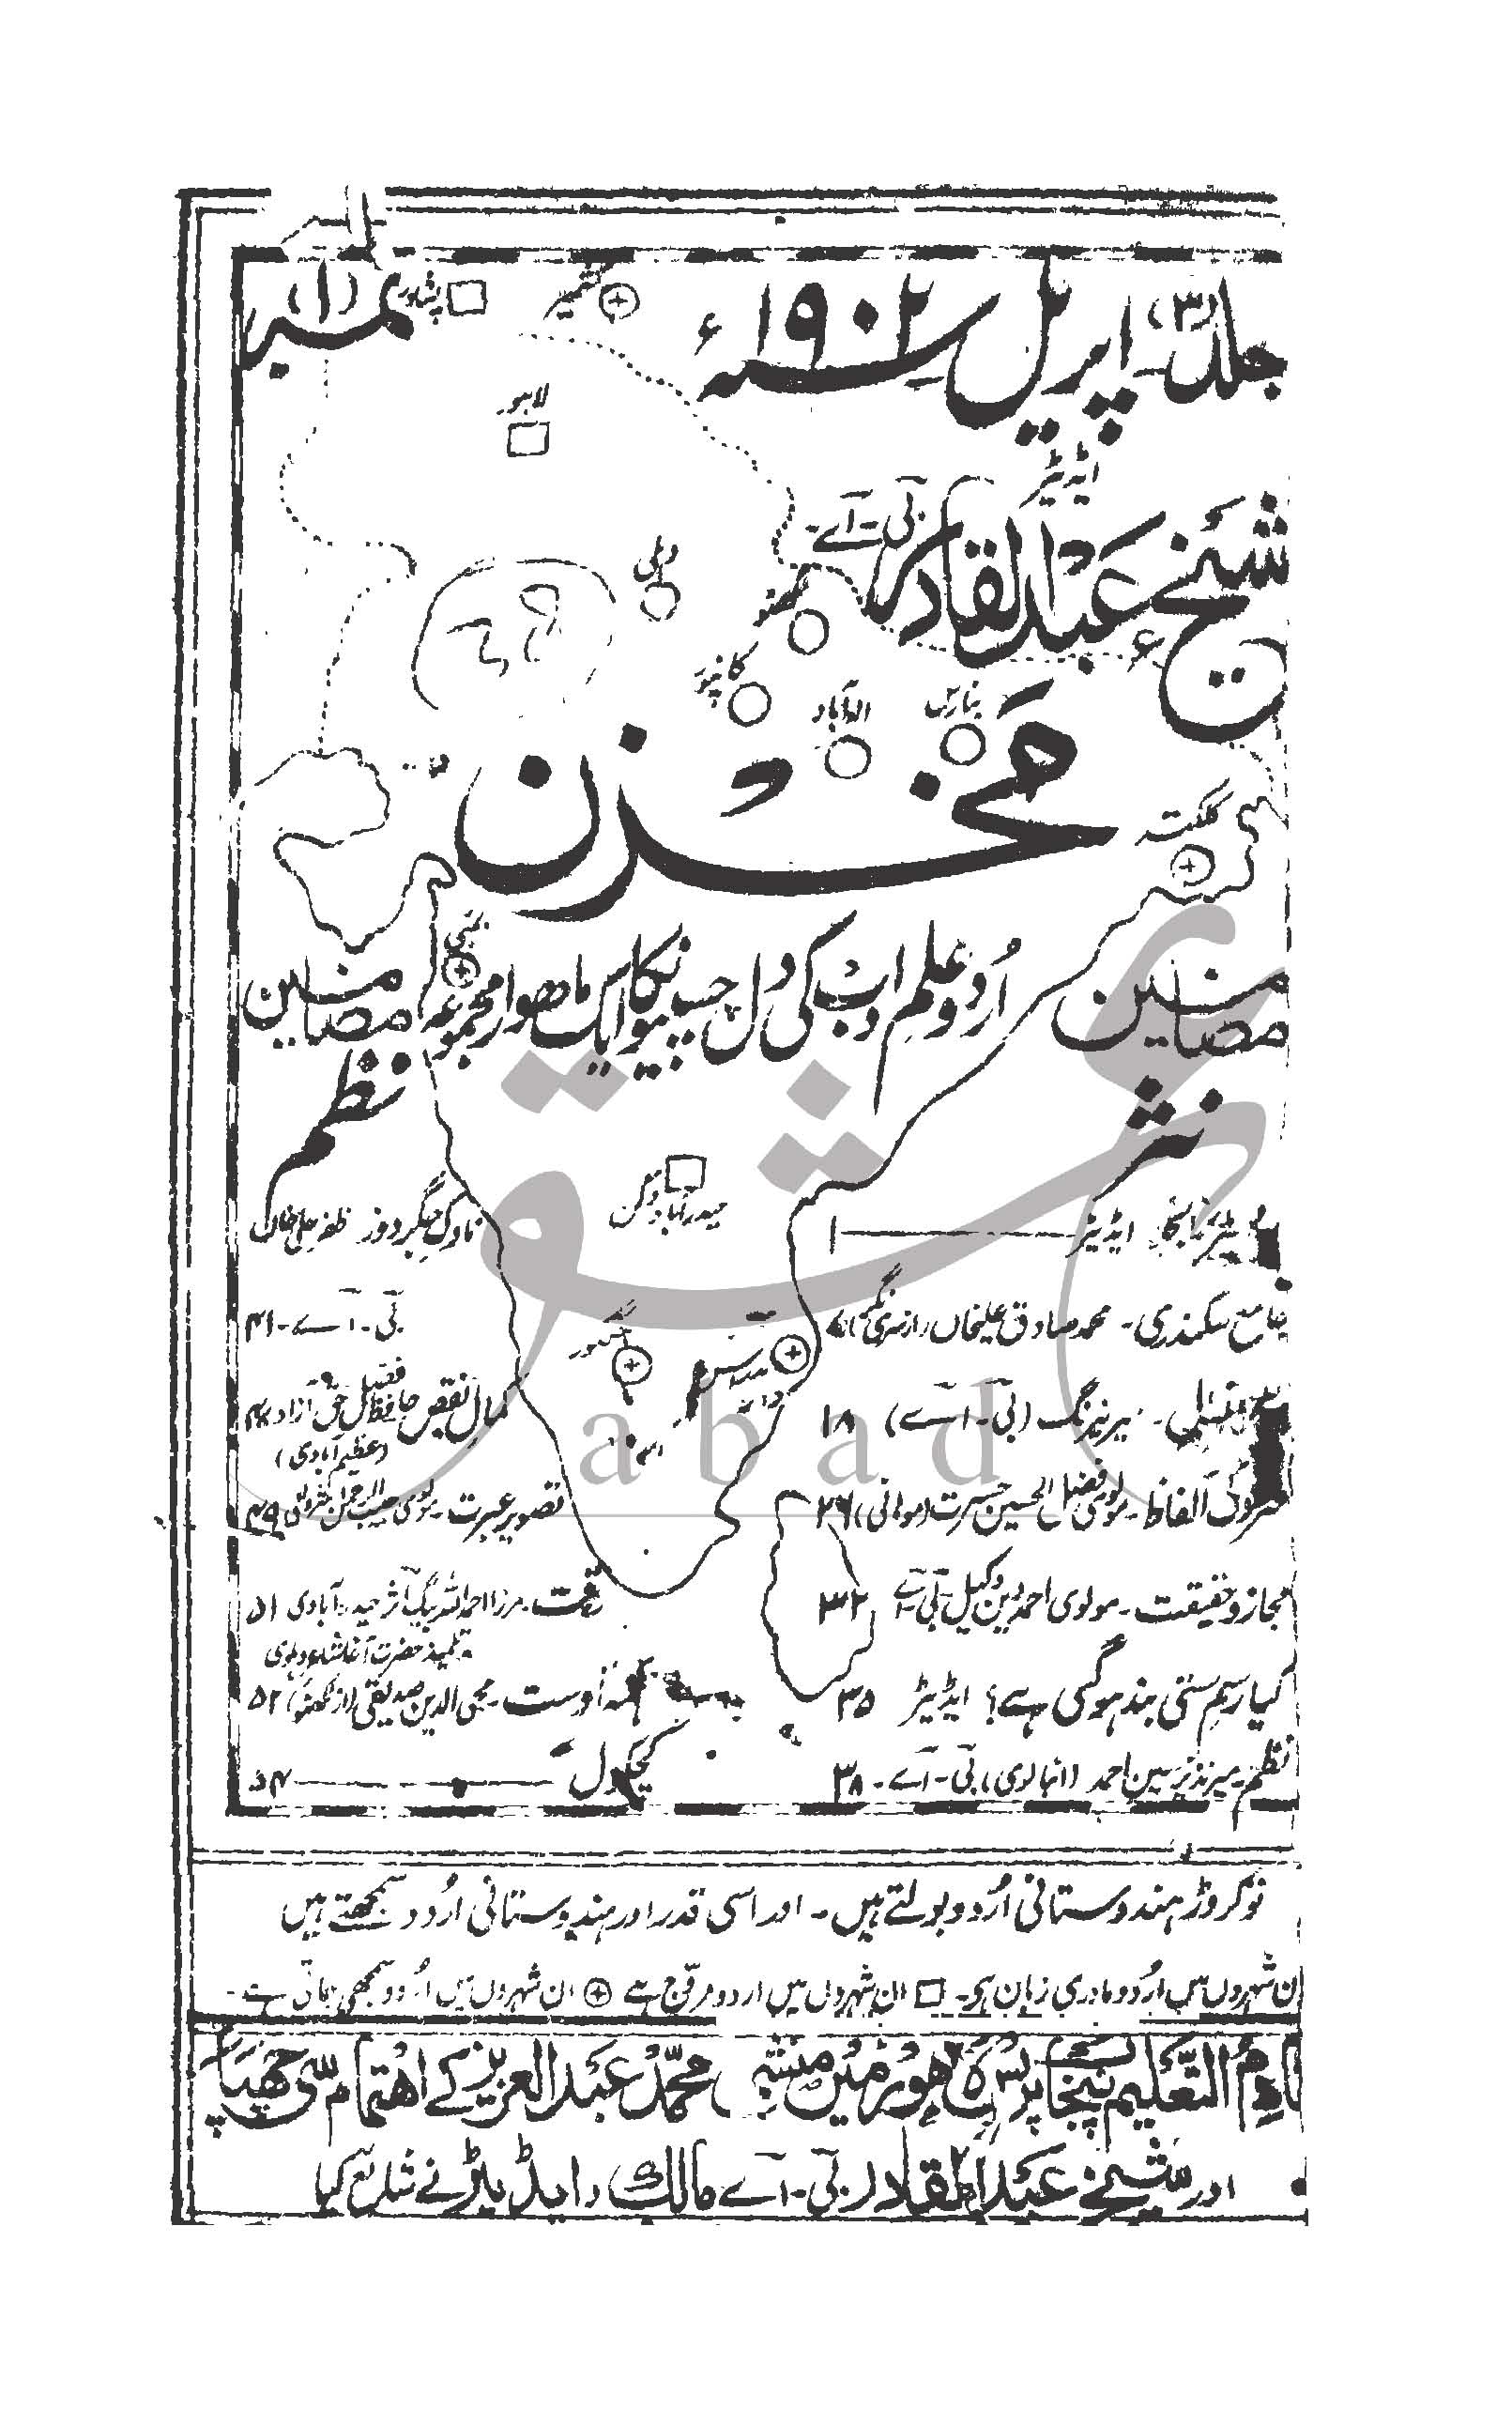 جلد (۳) - اپریل سنہ ۱۹۰۲ء
نمبر (۱)
پشاور
کشمیر
لاہور
ایڈیٹر
شیخ عبدالقادر بی - اے -
دہلی
لکھنؤ
کانپور
الہ آباد
بنارس
مخزن
کلکتہ
بمبئی
اُردو علم و ادب کی دل چسپیوں کا ایک ماھوار مجموعہ
مضامین
نثر
ایڈیٹر ۱
جامع سکندری - محمد صادق علیخاں (از سری نگر) ۷
میر نیرنگ (بی - اے) ۱۸
متروک الفاظ - مولوی فضل الحسین حسرت (موہانی) ۲۶
مجاز و حقیقت - مولوی احمد دین وکیل بی - اے ۳۲
کیا رسم ستی بند ہوگئی ہے؟ ایڈیٹر ۳۵
نظم - میر نذیر حسین احمد (انبالوی) بی - اے - ۳۸
مضامین
نظم
ناوک جگر دوز ظفر علی خاں
بی - اے - ۴۱
کمال نقص حافظ فضل حق آزاد ۴۷
(عظیم آبادی)
تصویر عبرت - مولوی حبیب الرحمن ۴۹
مرزا احمد اللہ بیگ آثر حیدرآبادی ۵۱
تلمیذ حضرت آغا شاعر دہلوی
ہمہ اوست - محی الدین صدیقی (از لکھنؤ) ۵۲
کچکول ۵۴
حیدرآباد دکن
بنگلور
مدراس
نو کروڑ ہندوستانی اُردو بولتے ہیں - اور اسی قدر اور ہندوستانی اُردو سمجھتے ہیں
ان شہروں میں اُردو مادری زبان ہی - □ ان شہروں میں اردو مروّج ہے ⊕ ان شہروں میں اُردو سمجھی جاتی ہے -
خادم التعلیم پنجاب پریس لاھور میں منشی محمّد عبدالعزیز کے اھتمام سی چھپا
اور شیخ عبدالقادر بی - اے مالک و ایڈیٹر نے شائع کیا
abad